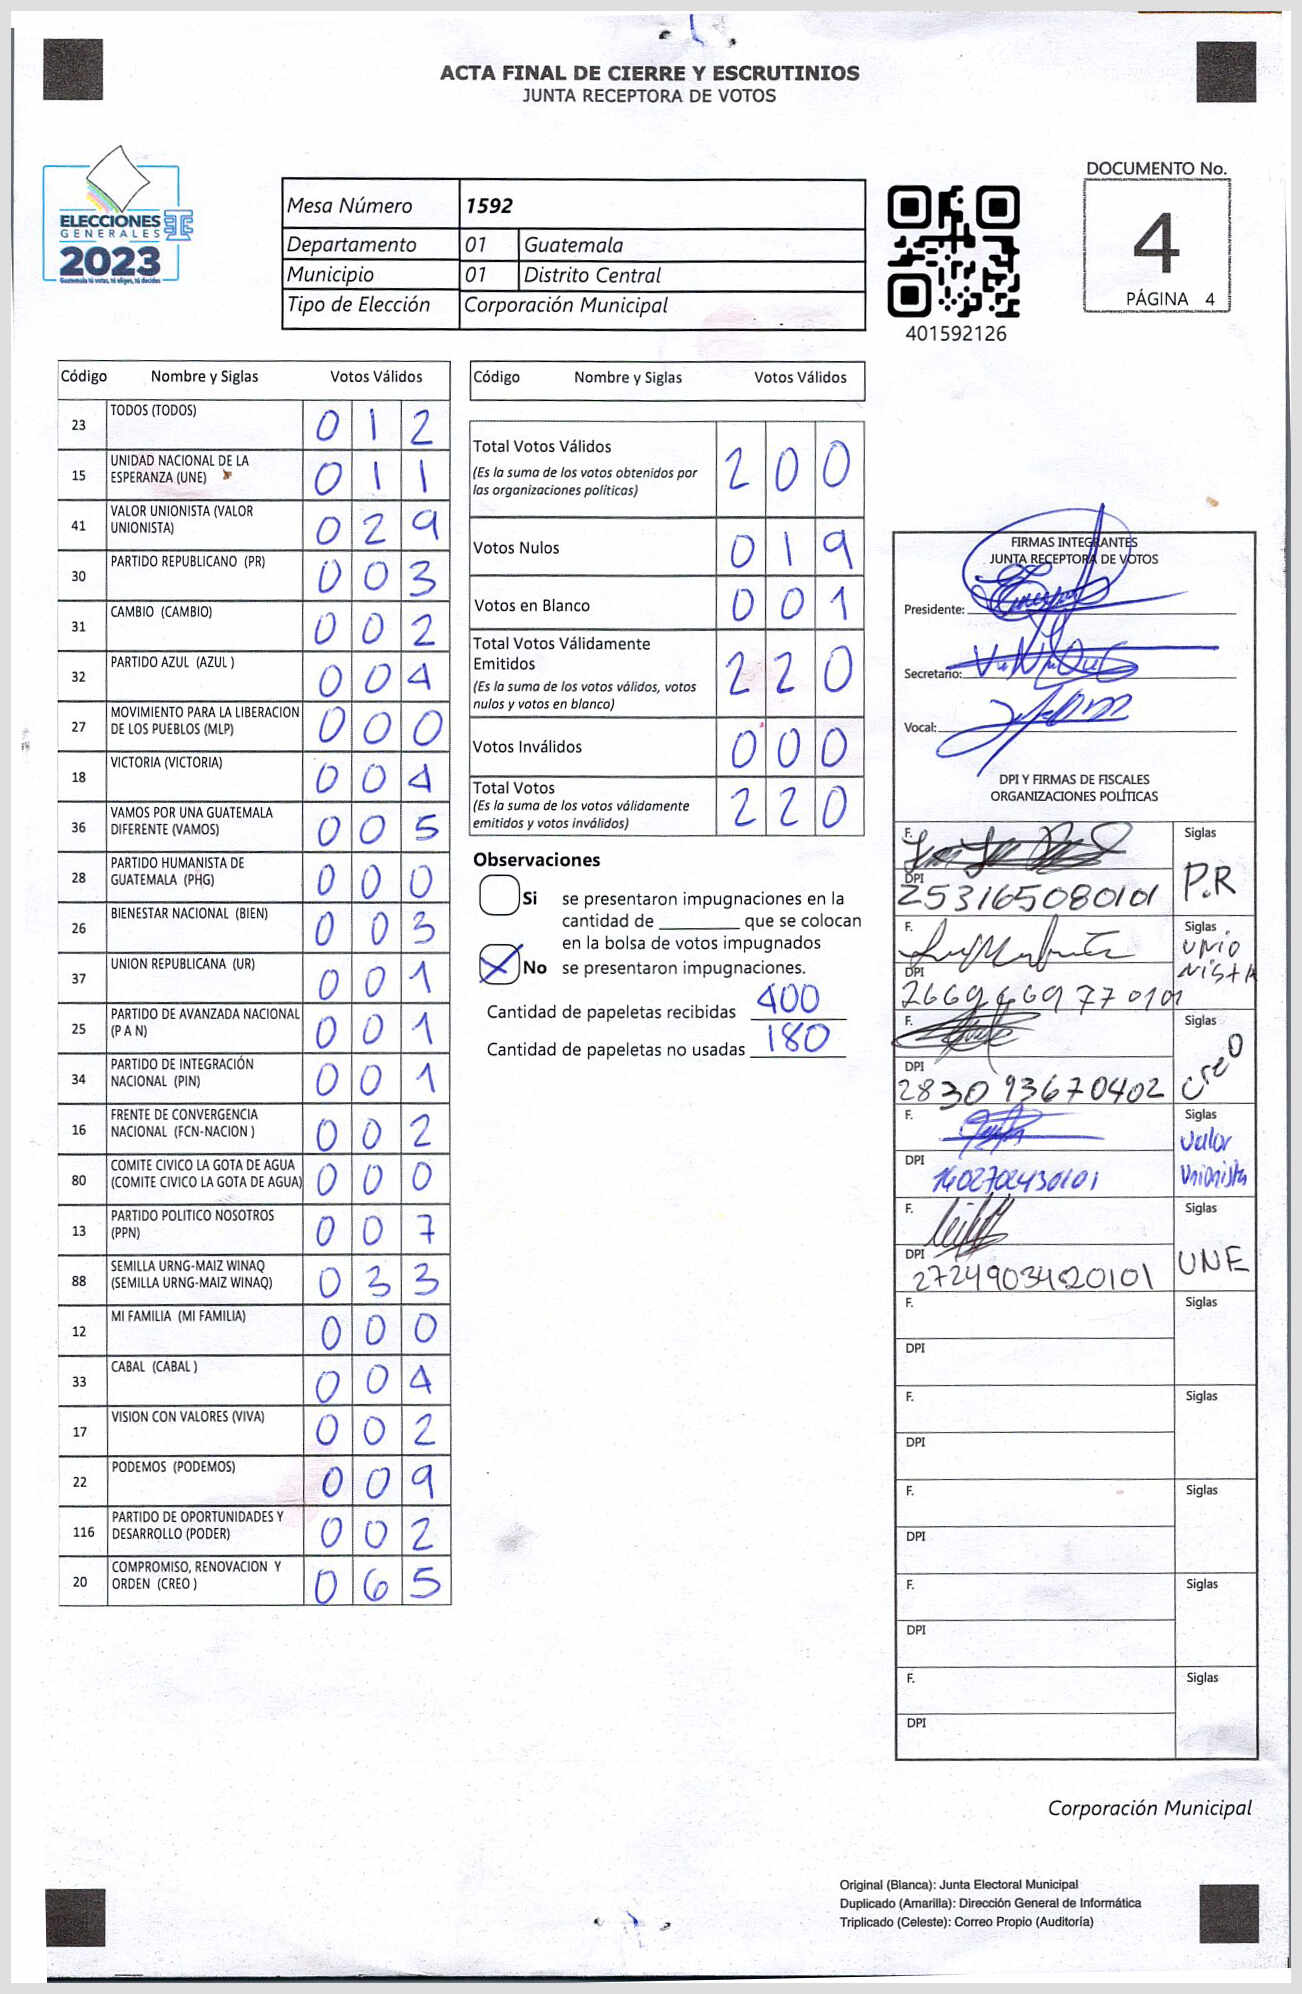 ACTA FINAL DE CIERRE Y ESCRUTINIOS
JUNTA RECEPTORA DE VOTOS
ELECCIONES
GENERALES
2023
Guatemala tú votas, tú eliges, tú decides
Mesa Número 1592
Departamento 01 Guatemala
Municipio 01 Distrito Central
Tipo de Elección Corporación Municipal
401592126
DOCUMENTO No.
4
PÁGINA 4
Código Nombre y Siglas Votos Válidos
23 TODOS (TODOS) 0 1 2
15 UNIDAD NACIONAL DE LA ESPERANZA (UNE) 0 1 1
41 VALOR UNIONISTA (VALOR UNIONISTA) 0 2 9
30 PARTIDO REPUBLICANO (PR) 0 0 3
31 CAMBIO (CAMBIO) 0 0 2
32 PARTIDO AZUL (AZUL ) 0 0 4
27 MOVIMIENTO PARA LA LIBERACION DE LOS PUEBLOS (MLP) 0 0 0
18 VICTORIA (VICTORIA) 0 0 4
36 VAMOS POR UNA GUATEMALA DIFERENTE (VAMOS) 0 0 5
28 PARTIDO HUMANISTA DE GUATEMALA (PHG) 0 0 0
26 BIENESTAR NACIONAL (BIEN) 0 0 3
37 UNION REPUBLICANA (UR) 0 0 1
25 PARTIDO DE AVANZADA NACIONAL (P A N) 0 0 1
34 PARTIDO DE INTEGRACIÓN NACIONAL (PIN) 0 0 1
16 FRENTE DE CONVERGENCIA NACIONAL (FCN-NACION ) 0 0 2
80 COMITE CIVICO LA GOTA DE AGUA (COMITE CIVICO LA GOTA DE AGUA) 0 0 0
13 PARTIDO POLITICO NOSOTROS (PPN) 0 0 7
88 SEMILLA URNG-MAIZ WINAQ (SEMILLA URNG-MAIZ WINAQ) 0 3 3
12 MI FAMILIA (MI FAMILIA) 0 0 0
33 CABAL (CABAL ) 0 0 4
17 VISION CON VALORES (VIVA) 0 0 2
22 PODEMOS (PODEMOS) 0 0 9
116 PARTIDO DE OPORTUNIDADES Y DESARROLLO (PODER) 0 0 2
20 COMPROMISO, RENOVACION Y ORDEN (CREO ) 0 6 5
Código Nombre y Siglas Votos Válidos
Total Votos Válidos 2 0 0
(Es la suma de los votos obtenidos por
las organizaciones políticas)
Votos Nulos 0 1 9
Votos en Blanco 0 0 1
Total Votos Válidamente
Emitidos 2 2 0
(Es la suma de los votos válidos, votos
nulos y votos en blanco)
Votos Inválidos 0 0 0
Total Votos 2 2 0
(Es la suma de los votos válidamente
emitidos y votos inválidos)
Observaciones
Si se presentaron impugnaciones en la
cantidad de ________ que se colocan
en la bolsa de votos impugnados
No se presentaron impugnaciones.
Cantidad de papeletas recibidas 400
Cantidad de papeletas no usadas 180
FIRMAS INTEGRANTES
JUNTA RECEPTORA DE VOTOS
Presidente:
Secretario:
Vocal:
DPI Y FIRMAS DE FISCALES
ORGANIZACIONES POLÍTICAS
F. Siglas
P.R
DPI
253165080101
F. Siglas
UNIO
NISTA
DPI
F. Siglas
CreO
DPI
2830 93670402
F. Siglas
Valor
Unionista
DPI
1602702430101
F. Siglas
UNE
DPI
2724903420101
F. Siglas
DPI
F. Siglas
DPI
F. Siglas
DPI
F. Siglas
DPI
F. Siglas
DPI
Corporación Municipal
Original (Blanca): Junta Electoral Municipal
Duplicado (Amarilla): Dirección General de Informática
Triplicado (Celeste): Correo Propio (Auditoría)